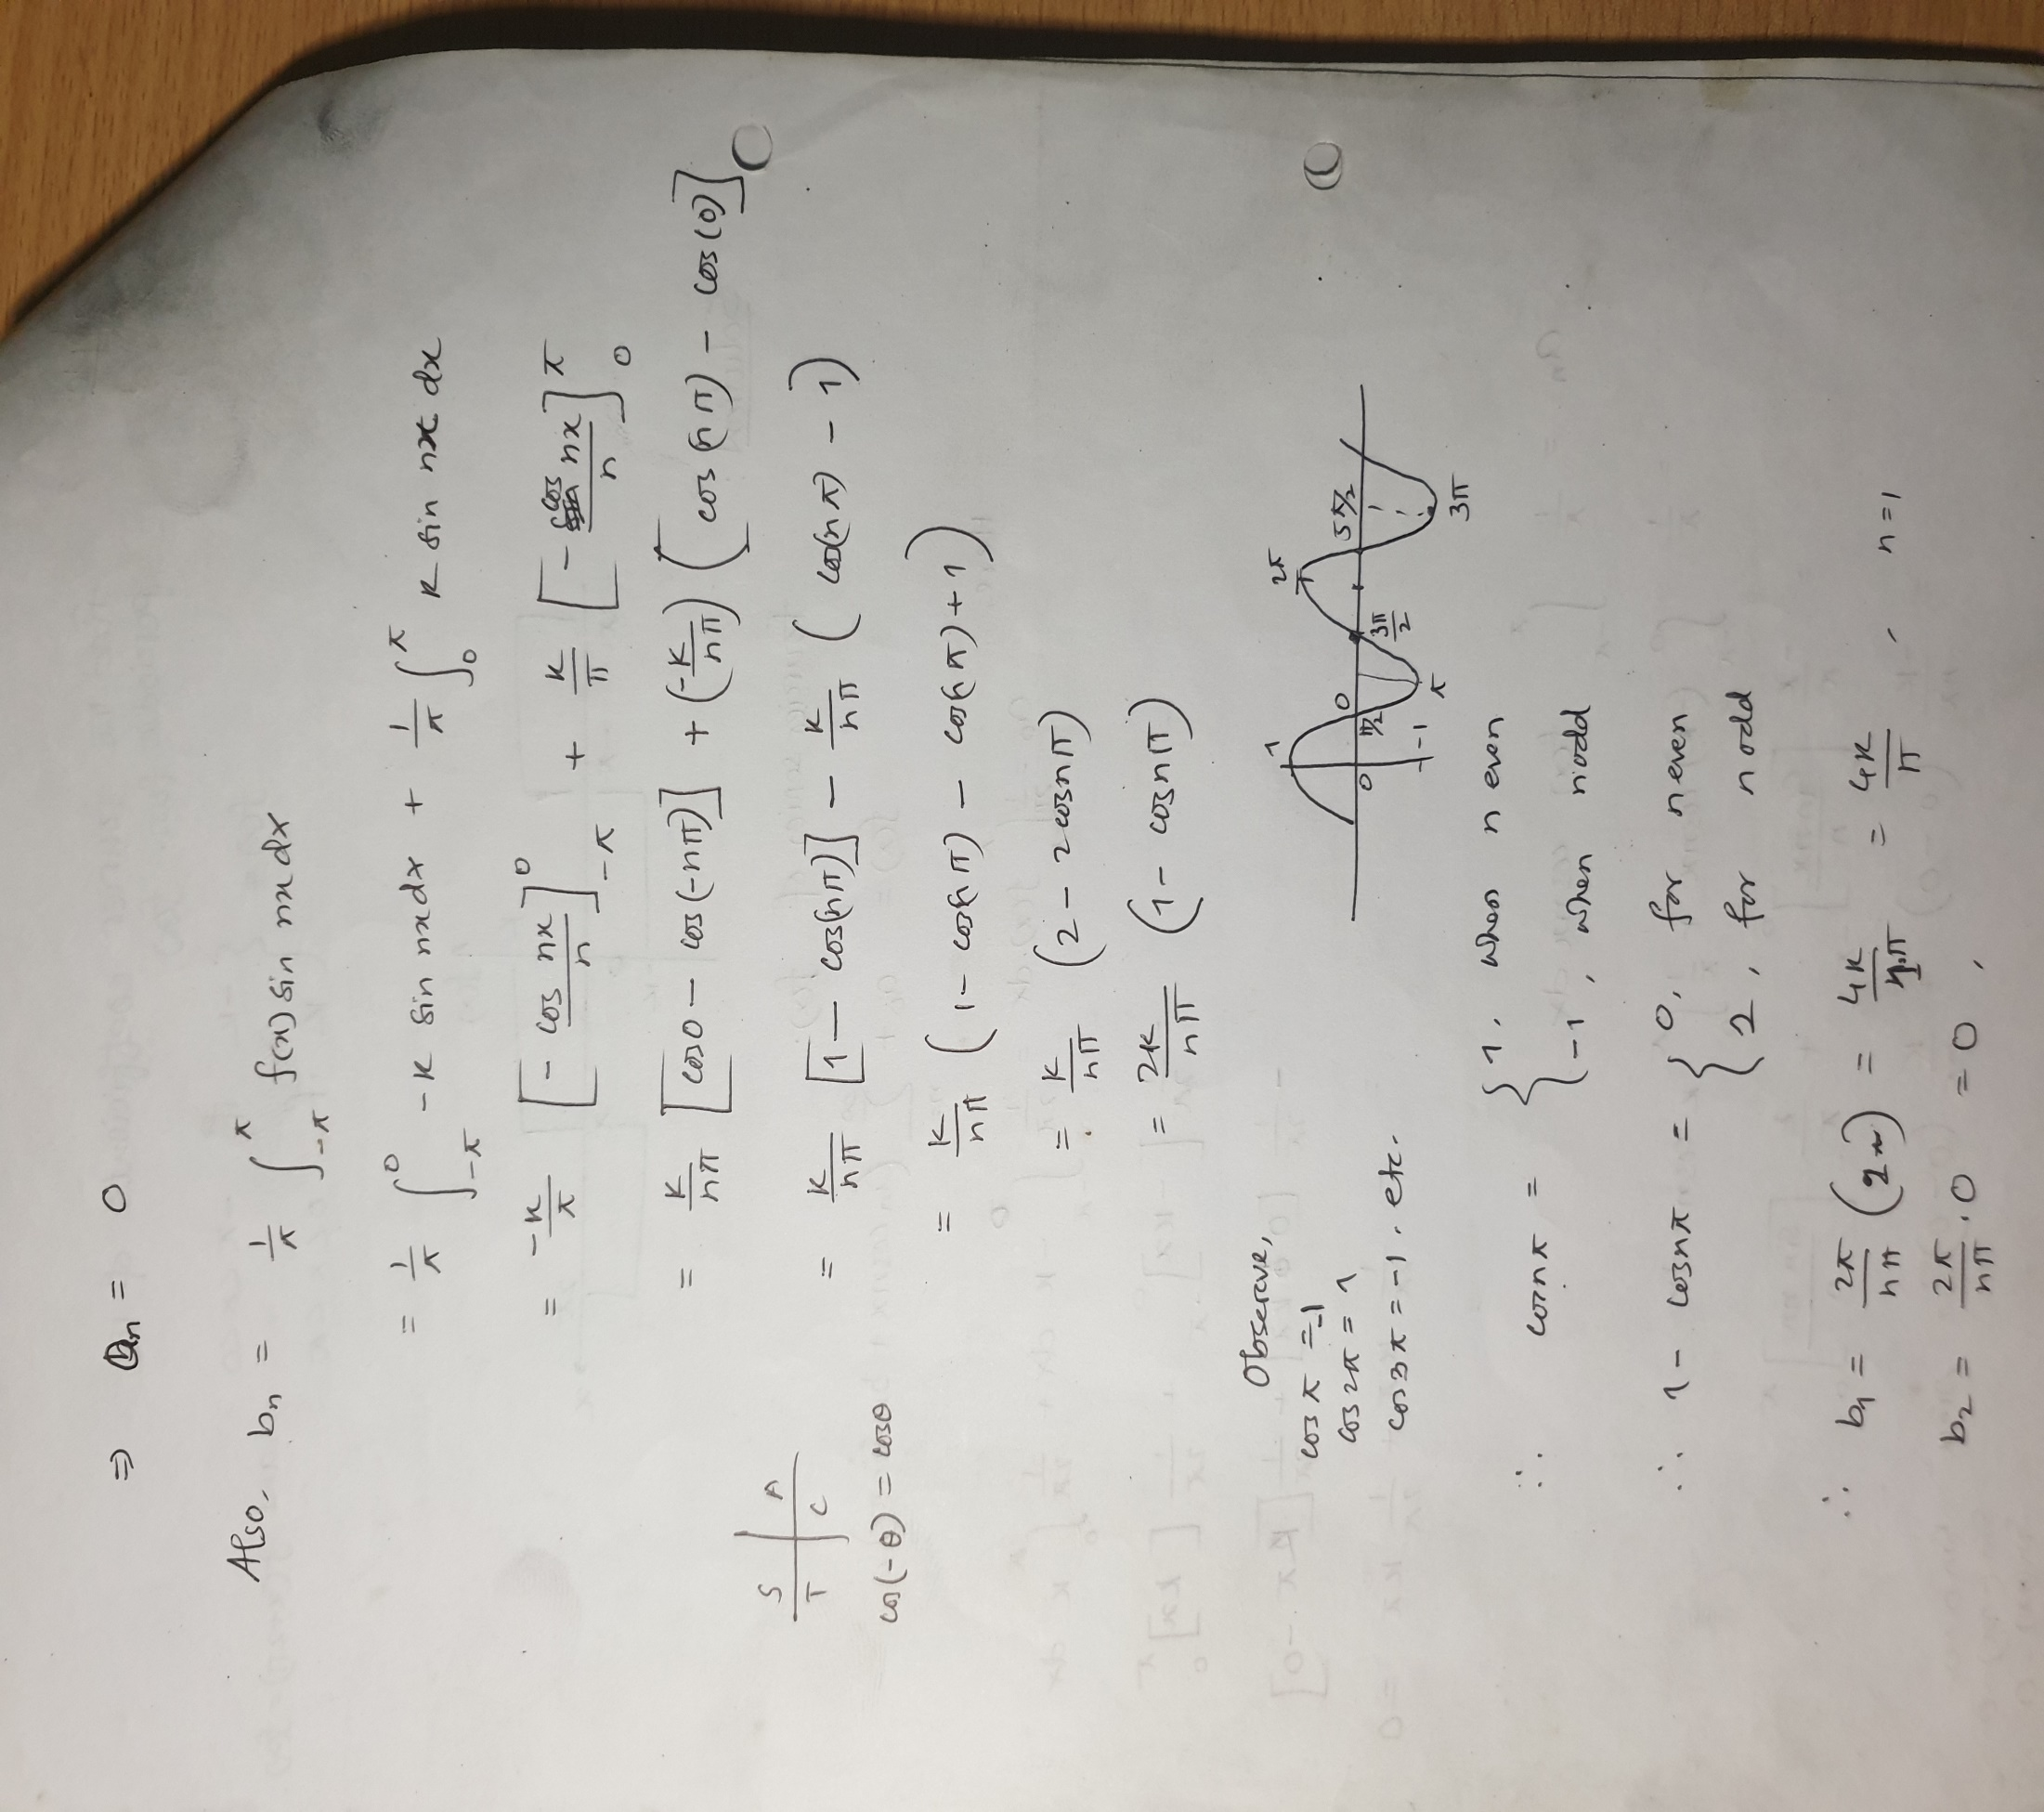 ⇒ aₙ = 0
Also, bₙ = 1/π ∫_{-π}^{π} f(x) sin nx dx
= 1/π ∫_{-π}^{0} -k sin nx dx + 1/π ∫_{0}^{π} k sin nx dx
= -k/π [- cos nx / n]_{-π}^{0} + k/π [- cos nx / n]_{0}^{π}
= k/nπ [cos 0 - cos(-nπ)] + (-k/nπ) (cos(nπ) - cos(0)]
S A
T C
cos(-θ) = cosθ
= k/nπ [1 - cos(nπ)] - k/nπ (cos(nπ) - 1)
= k/nπ (1 - cos(nπ) - cos(nπ) + 1)
= k/nπ (2 - 2cosnπ)
= 2k/nπ (1 - cosnπ)
Observe,
cos π = -1
cos 2π = 1
cos 3π = -1, etc.
1 2π
0 π/2 0 3π/2 5π/2
-1 π 3π
∴ cosnπ = { 1, when n even
-1, when n odd
∴ 1 - cosnπ = { 0, for n even
2, for n odd
∴ b₁ = 2π/nπ (2) = 4k/π = 4k/π , n=1
b₂ = 2π/nπ . 0 = 0 ,